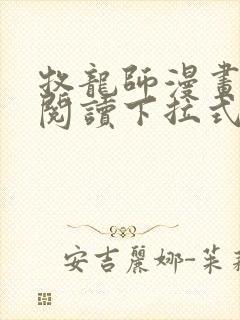 牧龍師漫畫
閱讀下拉式
安吉麗娜-茱